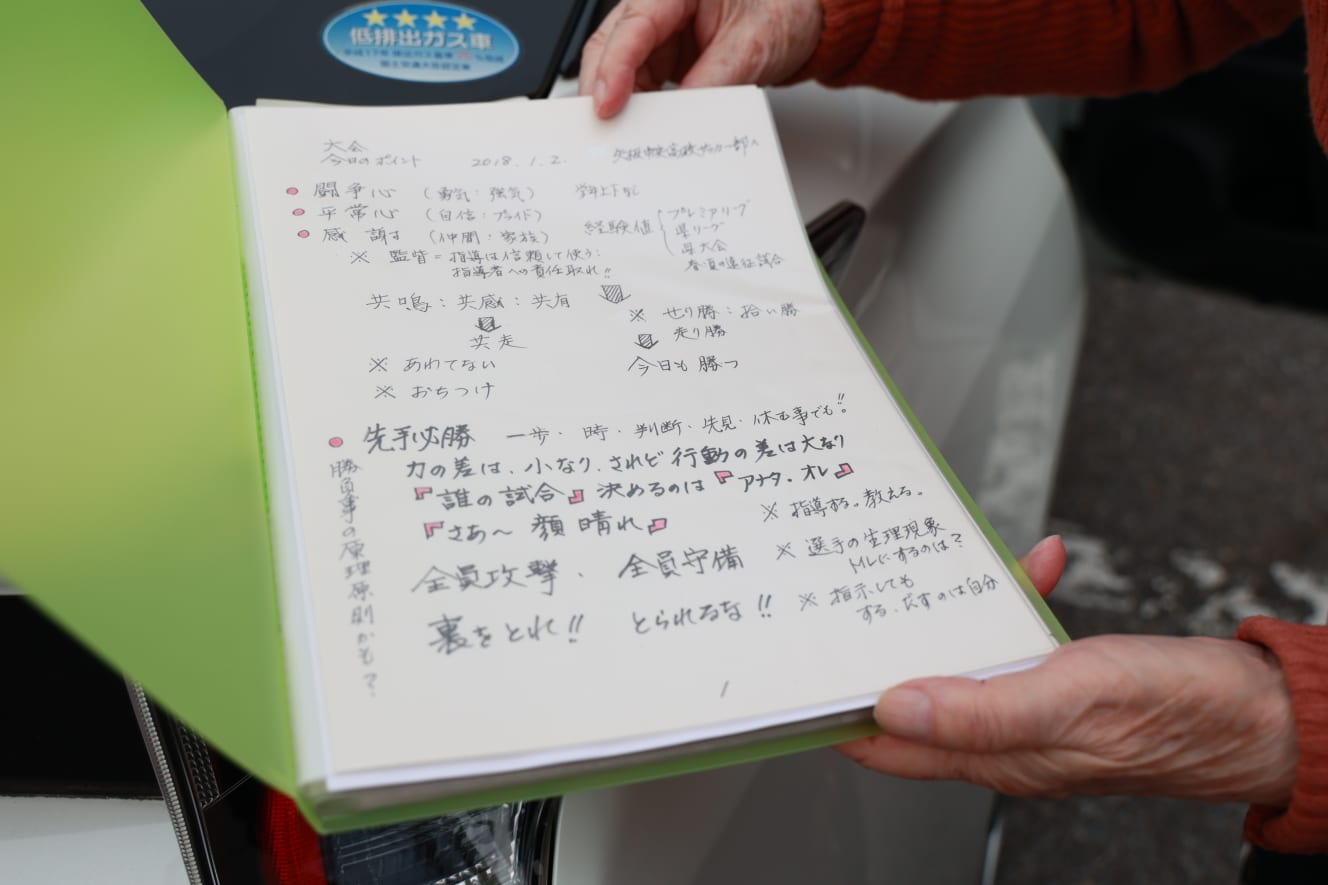 ★★★★
低排出ガス車
大会
今日のポイント 2018.1.2. 矢板中央高校サッカー部へ
● 闘争心 (勇気:強気) 学年上下なし
● 平常心 (自信:プライド)
● 感謝 (仲間:家族) 経験値 プレミアリーグ
県リーグ
県大会
春・夏の遠征試合
※ 監督=指導は信頼して使う:
指導者への責任取れ!!
共鳴:共感:共有
共走
※ あわてない
※ おちつけ
※ せり勝:拾い勝
走り勝
今日も勝つ
● 先手必勝 一歩・時・判断・先見・休む事でも!!
力の差は、小なり、されど行動の差は大なり
『誰の試合』決めるのは『アナタ・オレ』
『さあ〜顔晴れ』
※ 指導する。教える。
※ 選手の生理現象
トイレにするのは?
※ 指示しても
する、だすのは自分
全員攻撃、全員守備
裏をとれ!! とられるな!!
勝負事の原理原則かも?
1